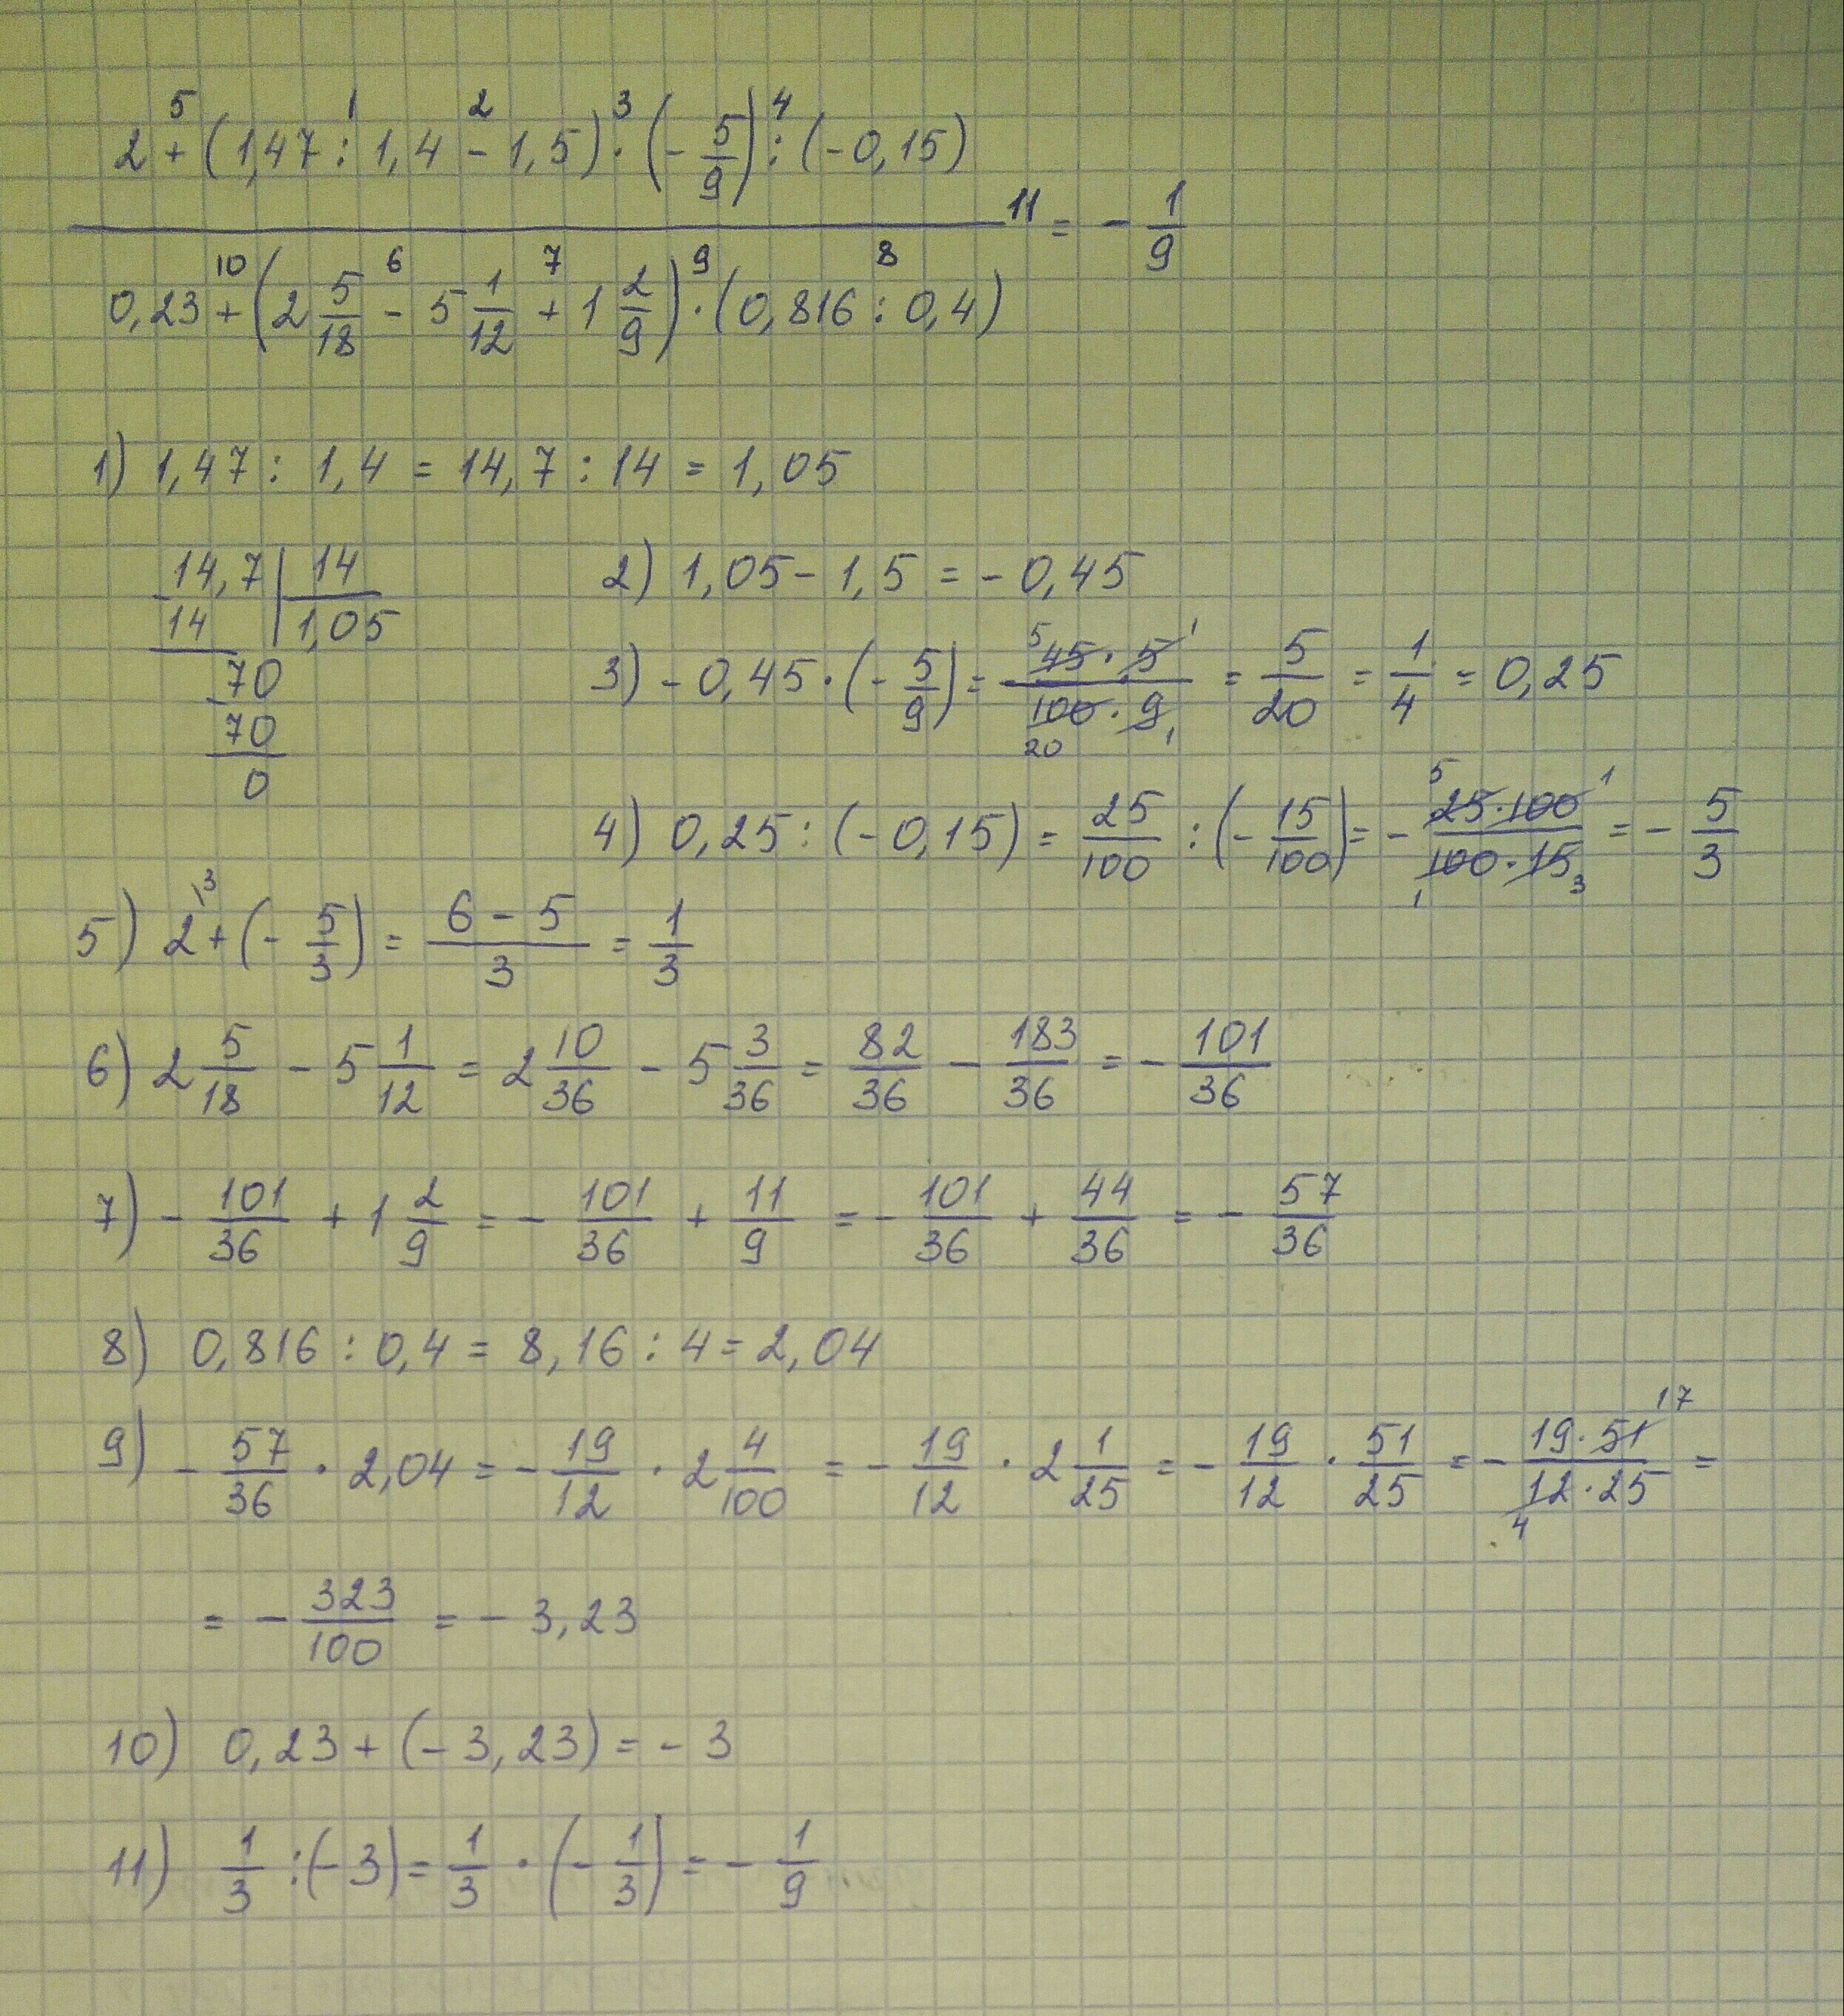 5 1 2 3 4
2 + (1,47 : 1,4 - 1,5) · (- 5/9) : (-0,15)
11 = - 1/9
10 6 7 9 8
0,23 + (2 5/18 - 5 1/12 + 1 2/9) · (0,816 : 0,4)
1) 1,47 : 1,4 = 14,7 : 14 = 1,05
14,7 | 14
14 | 1,05
70
70
0
2) 1,05 - 1,5 = - 0,45
3) - 0,45 · (- 5/9) = 5 45 · 5 1 / 100 · 9 20 1 = 5/20 = 1/4 = 0,25
4) 0,25 : (-0,15) = 25/100 : (- 15/100) = - 5 25 · 100 1 / 100 · 15 1 3 = - 5/3
5) 2 \3 + (- 5/3) = 6 - 5 / 3 = 1/3
6) 2 5/18 - 5 1/12 = 2 10/36 - 5 3/36 = 82/36 - 183/36 = - 101/36
7) - 101/36 + 1 2/9 = - 101/36 + 11/9 = - 101/36 + 44/36 = - 57/36
8) 0,816 : 0,4 = 8,16 : 4 = 2,04
9) - 57/36 · 2,04 = - 19/12 · 2 4/100 = - 19/12 · 2 1/25 = - 19/12 · 51/25 = - 19 · 51 17 / 12 · 25 4 =
= - 323/100 = - 3,23
10) 0,23 + (-3,23) = - 3
11) 1/3 : (-3) = 1/3 · (- 1/3) = - 1/9